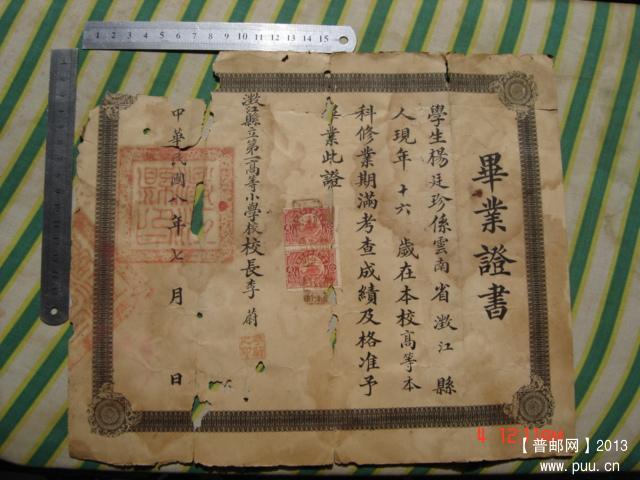 畢業證書
學生楊廷珍係雲南省澂江縣
人現年十六歲在本校高等本
科修業期滿考查成績及格准予
畢業此證
澂江縣立第一高等小學校校長李蔚
中華民國八年七月 日
1 2 3 4 5 6 7 8 9 10 11 12 13 14 15
【普邮网】2013
www.puu.cn